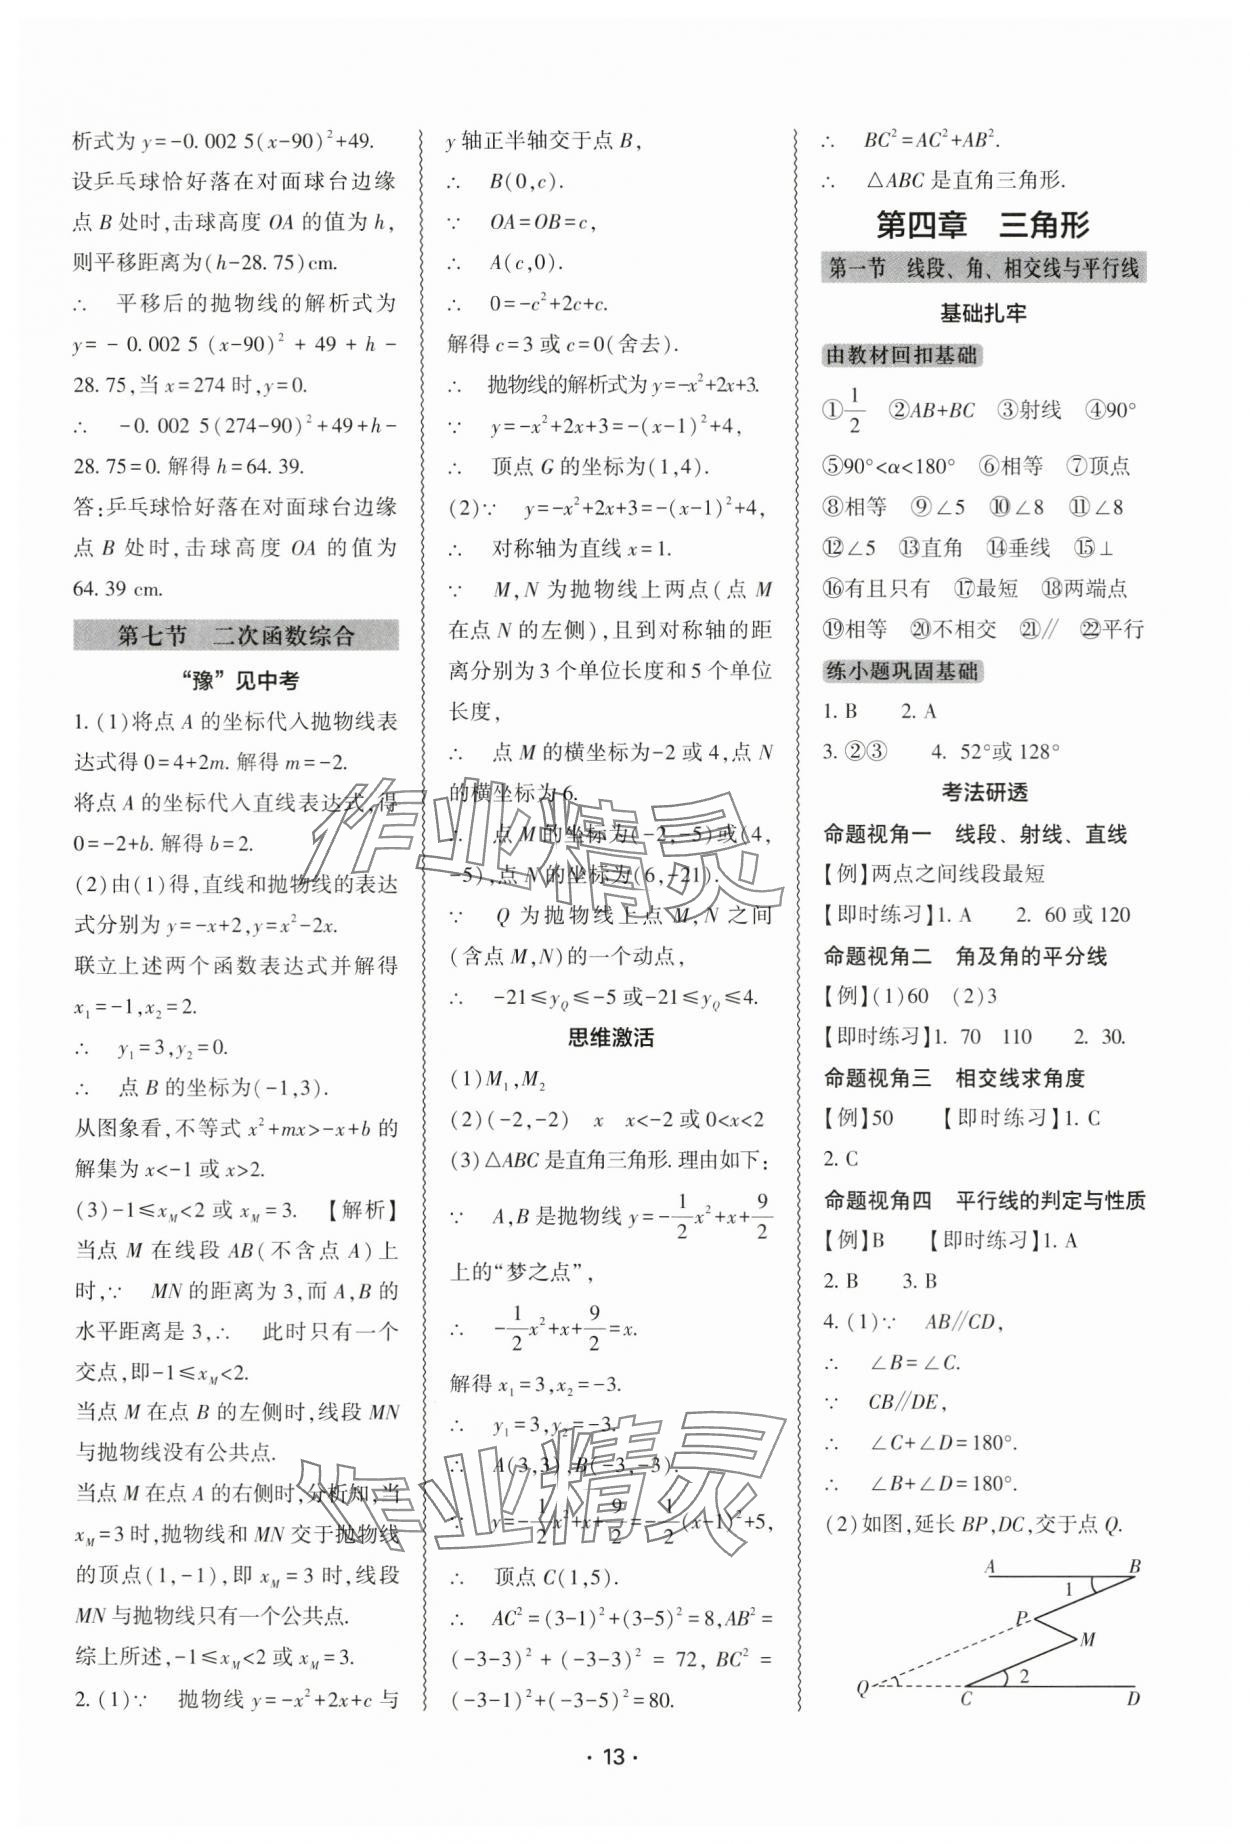 析式为 y=-0.002 5(x-90)²+49.
设乒乓球恰好落在对面球台边缘
点 B 处时,击球高度 OA 的值为 h,
则平移距离为(h-28.75)cm.
∴ 平移后的抛物线的解析式为
y=-0.002 5(x-90)²+49+h-
28.75,当 x=274 时,y=0.
∴ -0.002 5(274-90)²+49+h-
28.75=0. 解得 h=64.39.
答:乒乓球恰好落在对面球台边缘
点 B 处时,击球高度 OA 的值为
64.39 cm.
第七节 二次函数综合
“豫”见中考
1.(1)将点 A 的坐标代入抛物线表
达式得 0=4+2m. 解得 m=-2.
将点 A 的坐标代入直线表达式,得
0=-2+b. 解得 b=2.
(2)由(1)得,直线和抛物线的表达
式分别为 y=-x+2,y=x²-2x.
联立上述两个函数表达式并解得
x₁=-1,x₂=2.
∴ y₁=3,y₂=0.
∴ 点 B 的坐标为(-1,3).
从图象看,不等式 x²+mx>-x+b 的
解集为 x<-1 或 x>2.
(3)-1≤x_M<2 或 x_M=3. 【解析】
当点 M 在线段 AB(不含点 A)上
时,∵ MN 的距离为 3,而 A,B 的
水平距离是 3,∴ 此时只有一个
交点,即-1≤x_M<2.
当点 M 在点 B 的左侧时,线段 MN
与抛物线没有公共点.
当点 M 在点 A 的右侧时,分析知,当
x_M=3 时,抛物线和 MN 交于抛物线
的顶点(1,-1),即 x_M=3 时,线段
MN 与抛物线只有一个公共点.
综上所述,-1≤x_M<2 或 x_M=3.
2.(1)∵ 抛物线 y=-x²+2x+c 与
y 轴正半轴交于点 B,
∴ B(0,c).
∵ OA=OB=c,
∴ A(c,0).
∴ 0=-c²+2c+c.
解得 c=3 或 c=0(舍去).
∴ 抛物线的解析式为 y=-x²+2x+3.
∵ y=-x²+2x+3=-(x-1)²+4,
∴ 顶点 G 的坐标为(1,4).
(2)∵ y=-x²+2x+3=-(x-1)²+4,
∴ 对称轴为直线 x=1.
∵ M,N 为抛物线上两点(点 M
在点 N 的左侧),且到对称轴的距
离分别为 3 个单位长度和 5 个单位
长度,
∴ 点 M 的横坐标为-2 或 4,点 N
的横坐标为 6.
∴ 点 M 的坐标为(-2,-5)或(4,
-5),点 N 的坐标为(6,-21).
∵ Q 为抛物线上点 M,N 之间
(含点 M,N)的一个动点,
∴ -21≤y_Q≤-5 或-21≤y_Q≤4.
思维激活
(1)M₁,M₂
(2)(-2,-2) x x<-2 或 0<x<2
(3)△ABC 是直角三角形. 理由如下:
∵ A,B 是抛物线 y=-1/2x²+x+9/2
上的“梦之点”,
∴ -1/2x²+x+9/2=x.
解得 x₁=3,x₂=-3.
∴ y₁=3,y₂=-3.
∴ A(3,3),B(-3,-3).
∵ y=-1/2x²+x+9/2=-1/2(x-1)²+5,
∴ 顶点 C(1,5).
∴ AC²=(3-1)²+(3-5)²=8,AB²=
(-3-3)²+(-3-3)²=72,BC²=
(-3-1)²+(-3-5)²=80.
∴ BC²=AC²+AB².
∴ △ABC 是直角三角形.
第四章 三角形
第一节 线段、角、相交线与平行线
基础扎牢
由教材回扣基础
①1/2 ②AB+BC ③射线 ④90°
⑤90°<α<180° ⑥相等 ⑦顶点
⑧相等 ⑨∠5 ⑩∠8 ⑪∠8
⑫∠5 ⑬直角 ⑭垂线 ⑮⊥
⑯有且只有 ⑰最短 ⑱两端点
⑲相等 ⑳不相交 ㉑∥ ㉒平行
练小题巩固基础
1. B 2. A
3. ②③ 4. 52°或 128°
考法研透
命题视角一 线段、射线、直线
【例】两点之间线段最短
【即时练习】1. A 2. 60 或 120
命题视角二 角及角的平分线
【例】(1)60 (2)3
【即时练习】1. 70 110 2. 30.
命题视角三 相交线求角度
【例】50 【即时练习】1. C
2. C
命题视角四 平行线的判定与性质
【例】B 【即时练习】1. A
2. B 3. B
4.(1)∵ AB∥CD,
∴ ∠B=∠C.
∵ CB∥DE,
∴ ∠C+∠D=180°.
∴ ∠B+∠D=180°.
(2)如图,延长 BP,DC,交于点 Q.
A B
1
P
M
2
Q C D
· 13 ·
作业精灵
作业精灵